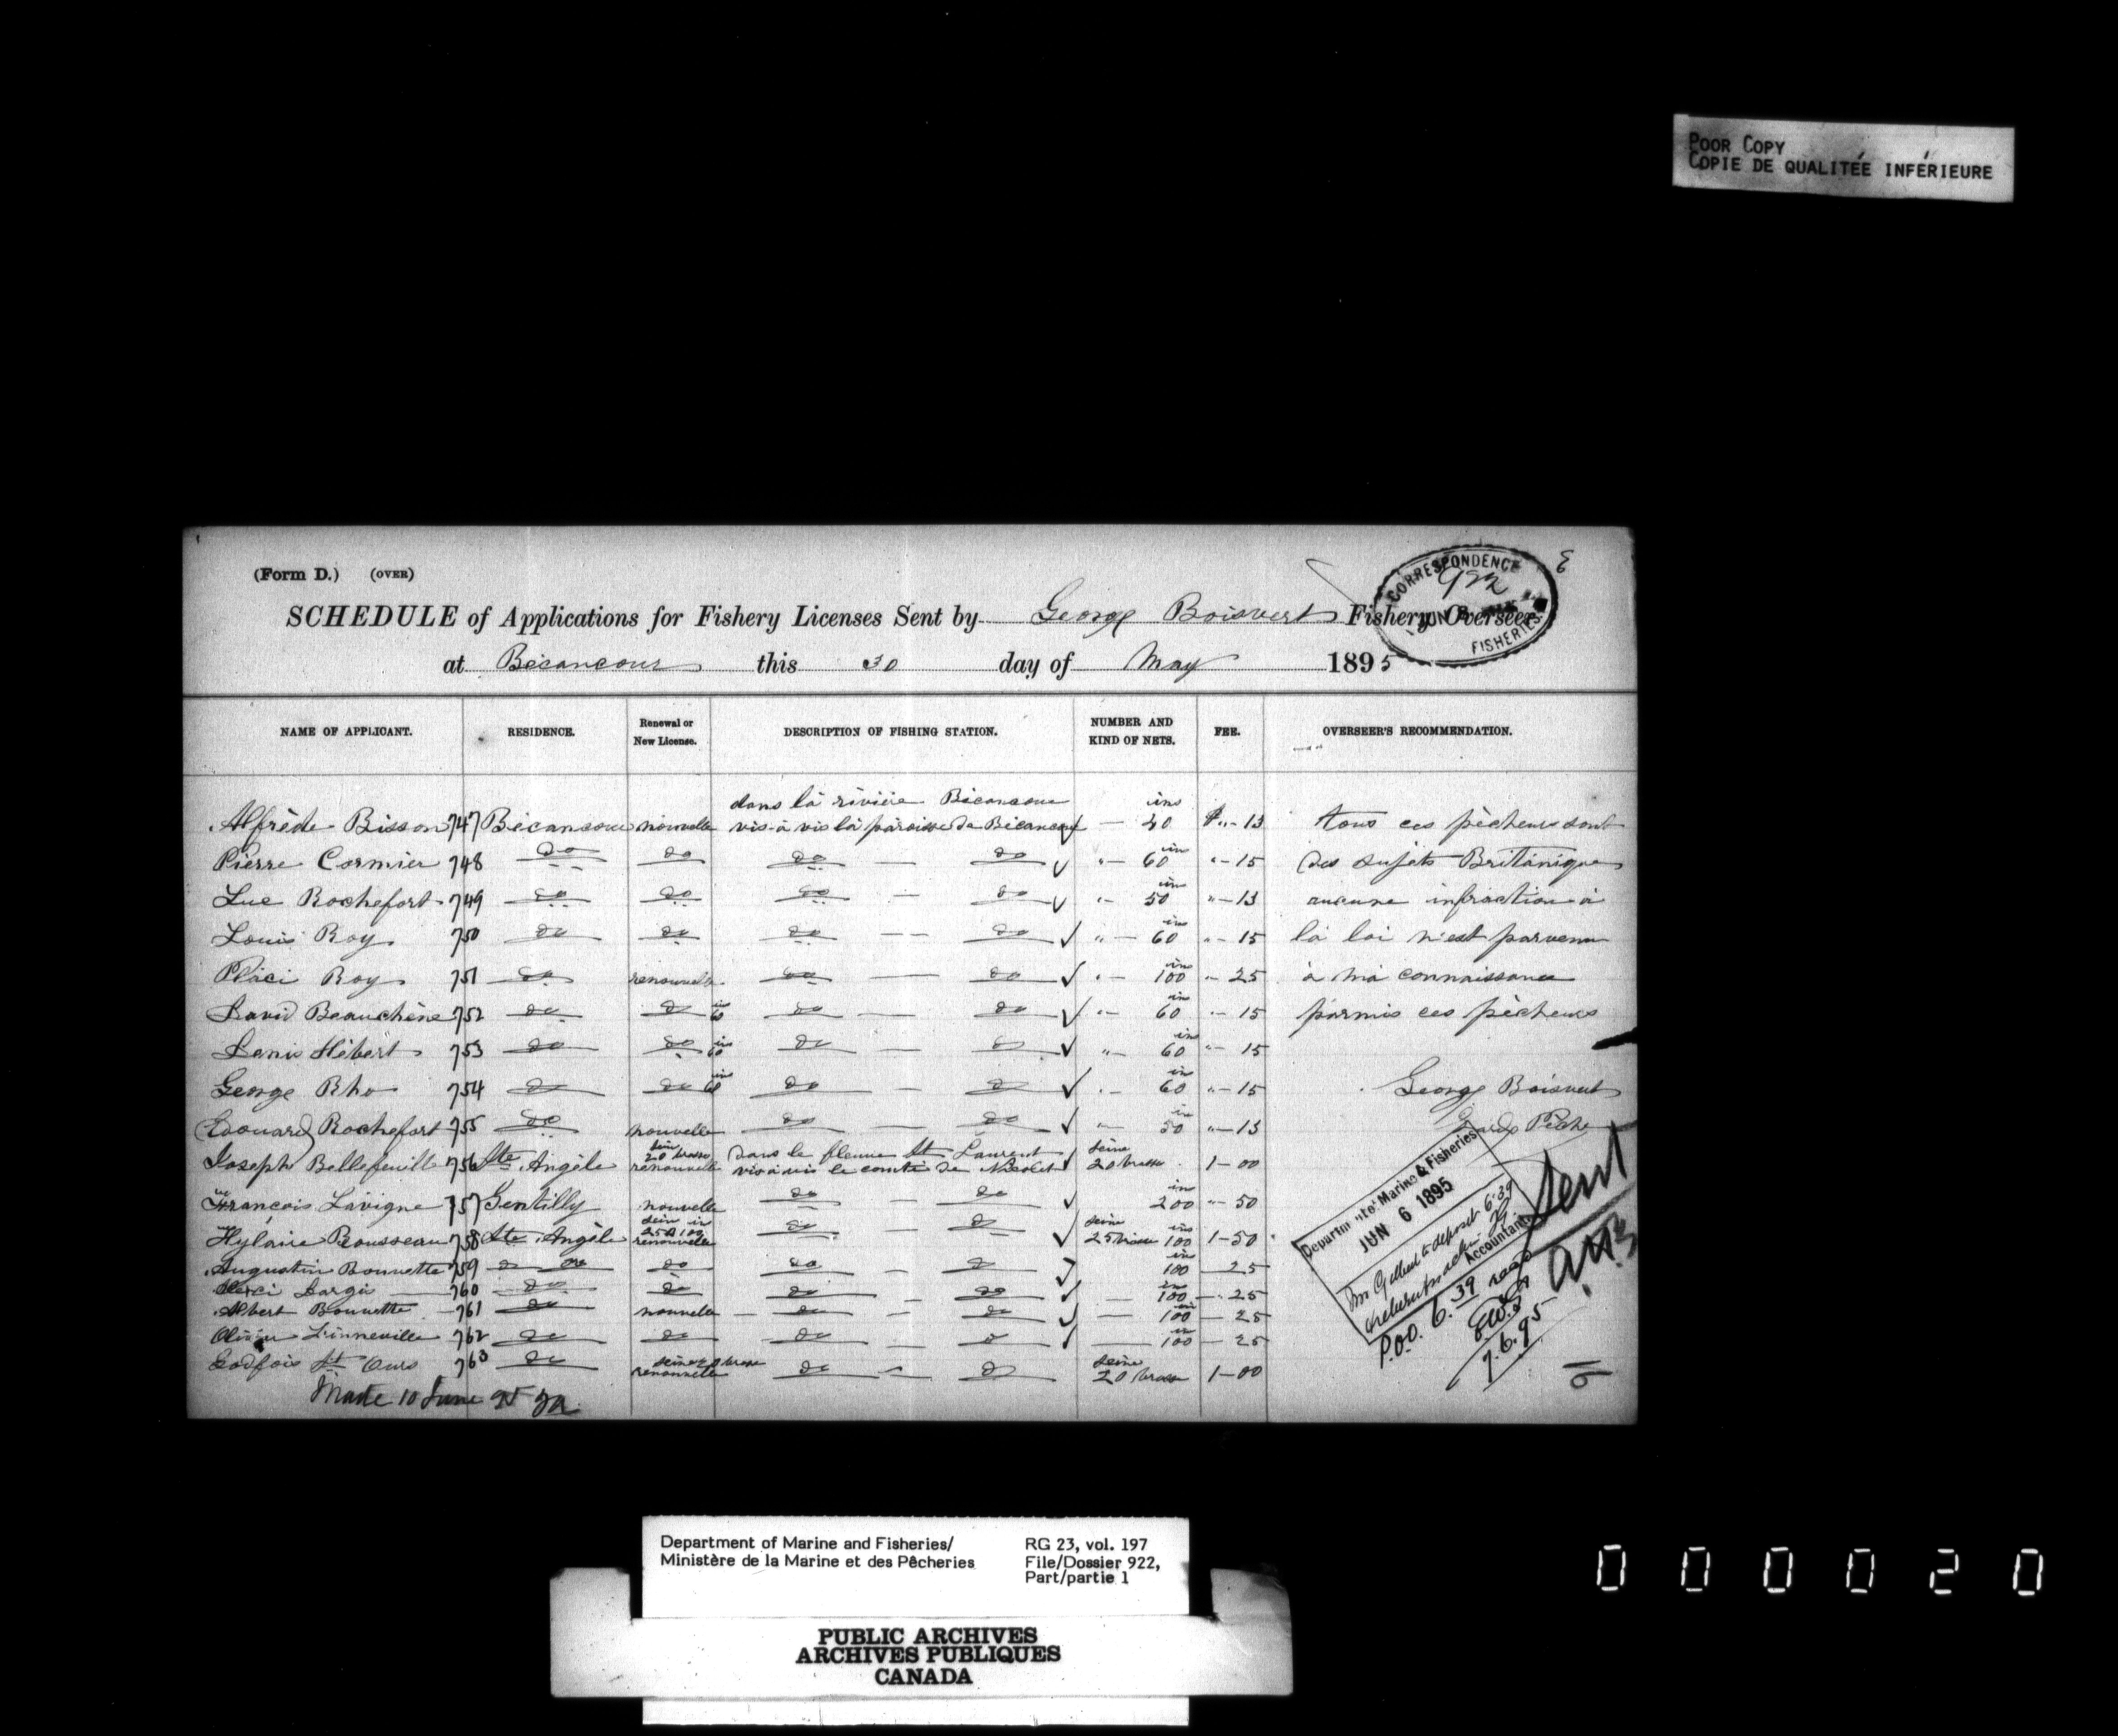 POOR COPY
COPIE DE QUALITÉE INFÉRIEURE
(Form D.) (OVER)
CORRESPONDENCE
922
JUN
FISHERIES
SCHEDULE of Applications for Fishery Licenses Sent by George Boisvert Fishery Overseer
at Bécancour this 30 day of May 1895
NAME OF APPLICANT. RESIDENCE. Renewal or New License. DESCRIPTION OF FISHING STATION. NUMBER AND KIND OF NETS. FEE. OVERSEER'S RECOMMENDATION.
dans la rivière Bécancour
Alfrède Bisson 747 Bécancour nouvelle vis-à vis la paroisse de Bécancour — ins 40 $ " - 13 tous ces pêcheurs sont
Pierre Cormier 748 do do do — do " - 60 in " - 15 des sujets Britanique
Luc Rochefort 749 do do do — do " - 50 in " - 13 aucune infraction à
Louis Roy 750 do do do — do " - 60 in " - 15 la loi n'est parvenu
Placi Roy 751 do renouvelle do — do " - 100 in " - 25 à ma connaissance
David Beauchène 752 do do 60 ins do — do " - 60 in " - 15 parmis ces pêcheurs
Denis Hébert 753 do do 60 ins do — do " - 60 in " - 15
George Rho 754 do do 60 ins do — do " - 60 in " - 15 George Boisvert
Edouard Rochefort 755 do nouvelle do — do " - 50 in " - 13 Garde Pêche
Joseph Bellefeuille 756 Ste Angèle renouvelle sein 20 brasse dans le fleuve St Laurent vis à vis le comté de Nicolet seine 20 brasse 1-00
François Lavigne 757 Gentilly nouvelle do — do 200 in " - 50
Hylaire Rousseau 758 Ste Angèle renouvelle do — do seine 25 brasse 100 ins 1-50
Augustin Bounette 759 do do do do — do 100 in 25
760 do do do — do 100 in " 25
Albert Bounette 761 do nouvelle do — do 100 in - 25
Linneville 762 do do do — do 100 in - 25
St Ours 763 do renouvelle do — do seine 20 brasse 1-00
Made 10 June 95
Department of Marine & Fisheries
JUN 6 1895
Accountant
Sent
P.O.O. 6.39
7.6.95
Department of Marine and Fisheries/
Ministère de la Marine et des Pêcheries
RG 23, vol. 197
File/Dossier 922,
Part/partie 1
PUBLIC ARCHIVES
ARCHIVES PUBLIQUES
CANADA
000020